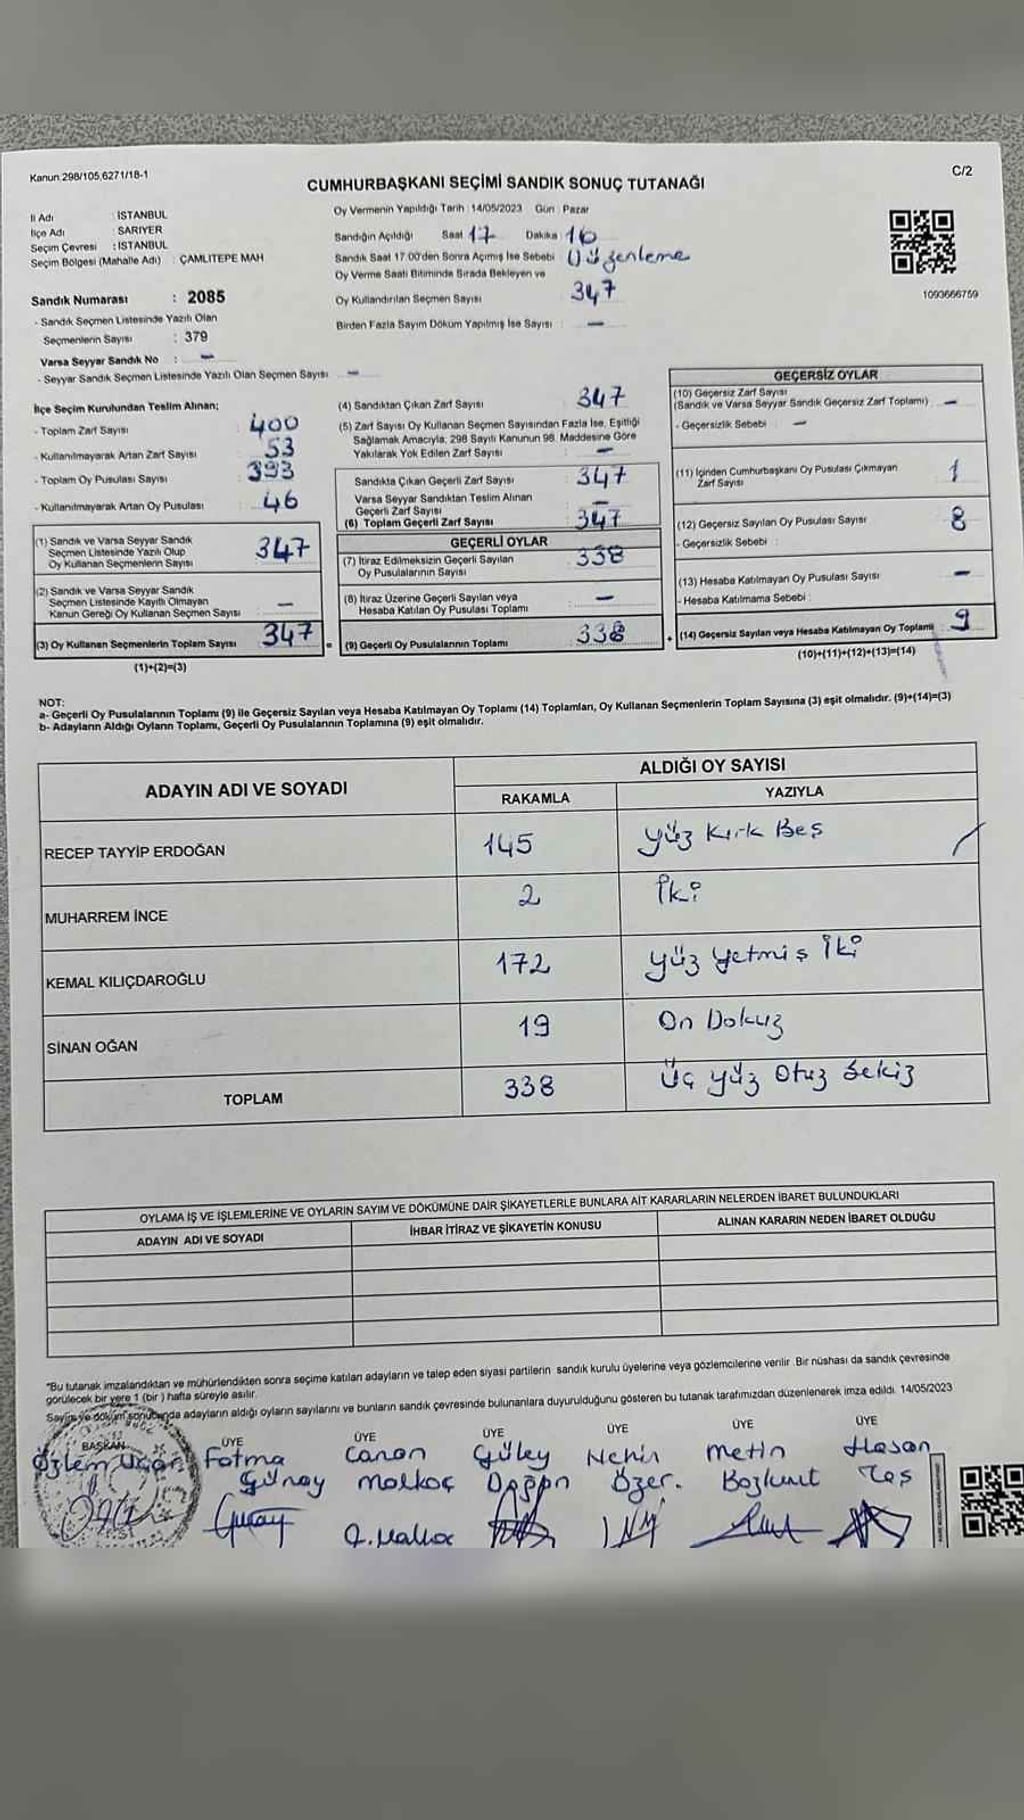 Kanun 298/105,6271/18-1
C/2
CUMHURBAŞKANI SEÇİMİ SANDIK SONUÇ TUTANAĞI
İl Adı : İSTANBUL
İlçe Adı : SARIYER
Seçim Çevresi : İSTANBUL
Seçim Bölgesi (Mahalle Adı) : ÇAMLITEPE MAH
Sandık Numarası : 2085
- Sandık Seçmen Listesinde Yazılı Olan
Seçmenlerin Sayısı : 379
Varsa Seyyar Sandık No : –
- Seyyar Sandık Seçmen Listesinde Yazılı Olan Seçmen Sayısı –
Oy Vermenin Yapıldığı Tarih : 14/05/2023 Gün : Pazar
Sandığın Açıldığı Saat 17 Dakika 16
Sandık Saat 17:00'den Sonra Açmış İse Sebebi Düzenleme
Oy Verme Saati Bitiminde Sırada Bekleyen ve
Oy Kullandırılan Seçmen Sayısı 347
Birden Fazla Sayım Döküm Yapılmış İse Sayısı : –
1093666759
İlçe Seçim Kurulundan Teslim Alınan;
- Toplam Zarf Sayısı : 400
- Kullanılmayarak Artan Zarf Sayısı : 53
- Toplam Oy Pusulası Sayısı : 393
- Kullanılmayarak Artan Oy Pusulası : 46
(1) Sandık ve Varsa Seyyar Sandık
Seçmen Listesinde Yazılı Olup
Oy Kullanan Seçmenlerin Sayısı 347
(2) Sandık ve Varsa Seyyar Sandık
Seçmen Listesinde Kayıtlı Olmayan
Kanun Gereği Oy Kullanan Seçmen Sayısı –
(3) Oy Kullanan Seçmenlerin Toplam Sayısı 347
(1)+(2)=(3)
(4) Sandıktan Çıkan Zarf Sayısı 347
(5) Zarf Sayısı Oy Kullanan Seçmen Sayısından Fazla İse, Eşitliği
Sağlamak Amacıyla; 298 Sayılı Kanunun 98. Maddesine Göre
Yakılarak Yok Edilen Zarf Sayısı –
Sandıkta Çıkan Geçerli Zarf Sayısı 347
Varsa Seyyar Sandıktan Teslim Alınan
Geçerli Zarf Sayısı –
(6) Toplam Geçerli Zarf Sayısı 347
GEÇERLİ OYLAR
(7) İtiraz Edilmeksizin Geçerli Sayılan
Oy Pusulalarının Sayısı : 338
(8) İtiraz Üzerine Geçerli Sayılan veya
Hesaba Katılan Oy Pusulası Toplamı : –
= (9) Geçerli Oy Pusulalarının Toplamı 338
GEÇERSİZ OYLAR
(10) Geçersiz Zarf Sayısı
(Sandık ve Varsa Seyyar Sandık Geçersiz Zarf Toplamı) –
- Geçersizlik Sebebi : –
(11) İçinden Cumhurbaşkanı Oy Pusulası Çıkmayan
Zarf Sayısı 1
(12) Geçersiz Sayılan Oy Pusulası Sayısı 8
- Geçersizlik Sebebi :
(13) Hesaba Katılmayan Oy Pusulası Sayısı –
- Hesaba Katılmama Sebebi :
+ (14) Geçersiz Sayılan veya Hesaba Katılmayan Oy Toplamı : 9
(10)+(11)+(12)+(13)=(14)
NOT:
a- Geçerli Oy Pusulalarının Toplamı (9) ile Geçersiz Sayılan veya Hesaba Katılmayan Oy Toplamı (14) Toplamları, Oy Kullanan Seçmenlerin Toplam Sayısına (3) eşit olmalıdır. (9)+(14)=(3)
b- Adayların Aldığı Oyların Toplamı, Geçerli Oy Pusulalarının Toplamına (9) eşit olmalıdır.
ADAYIN ADI VE SOYADI
ALDIĞI OY SAYISI
RAKAMLA YAZIYLA
RECEP TAYYİP ERDOĞAN 145 Yüz Kırk Beş
MUHARREM İNCE 2 İki
KEMAL KILIÇDAROĞLU 172 Yüz Yetmiş İki
SİNAN OĞAN 19 On Dokuz
TOPLAM 338 Üç Yüz Otuz Sekiz
OYLAMA İŞ VE İŞLEMLERİNE VE OYLARIN SAYIM VE DÖKÜMÜNE DAİR ŞİKAYETLERLE BUNLARA AİT KARARLARIN NELERDEN İBARET BULUNDUKLARI
ADAYIN ADI VE SOYADI İHBAR İTİRAZ VE ŞİKAYETİN KONUSU ALINAN KARARIN NEDEN İBARET OLDUĞU
*Bu tutanak imzalandıktan ve mühürlendikten sonra seçime katılan adayların ve talep eden siyasi partilerin sandık kurulu üyelerine veya gözlemcilerine verilir .Bir nüshası da sandık çevresinde
görülecek bir yere 1 (bir ) hafta süreyle asılır.
Sayım ve döküm sonucunda adayların aldığı oyların sayılarını ve bunların sandık çevresinde bulunanlara duyurulduğunu gösteren bu tutanak tarafımızdan düzenlenerek imza edildi. 14/05/2023
BAŞKAN ÜYE ÜYE ÜYE ÜYE ÜYE ÜYE
Özlem Uçar Fatma Canan Gülay Nehir Metin Hasan
Günay Malkoç Doğan Özer. Bozkurt Taş